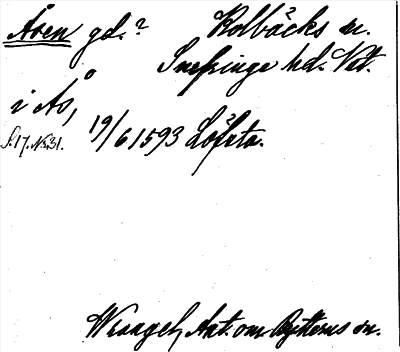 Åsen gd.? Kolbäcks sn.
Snefringe hd. Vstm.
i Ås,
S.17.Nr.31. 19/6 1593 Löfsta.
Wrangel, Ant. om Rytterns sn.